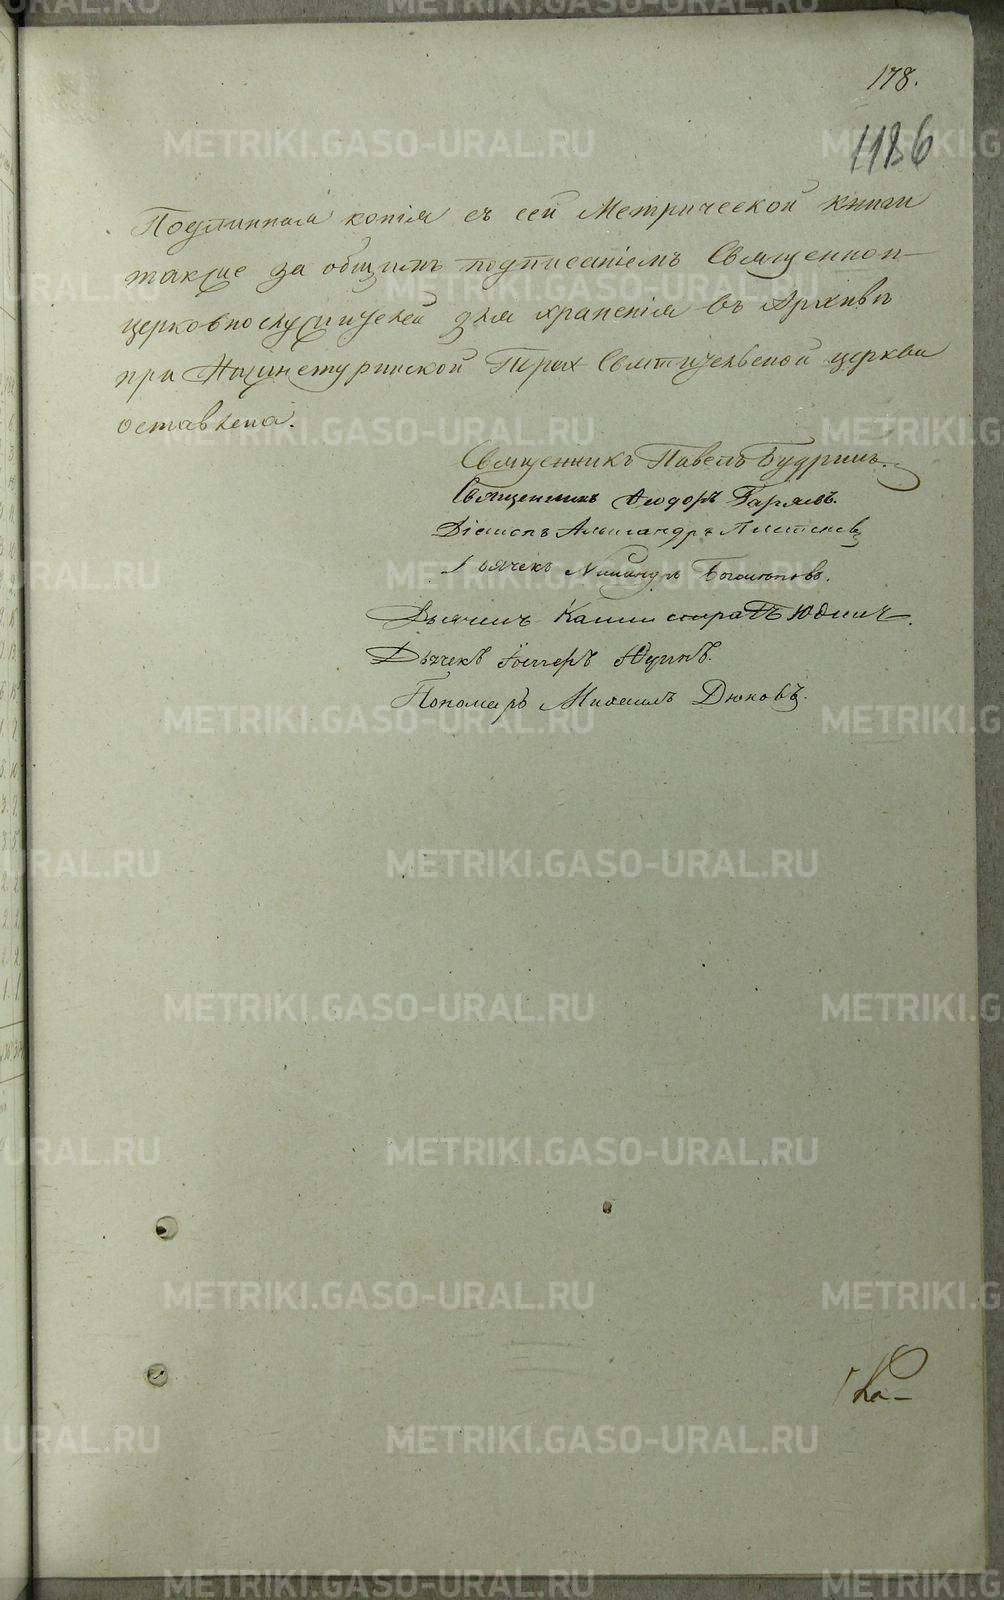 178.
1186
Подлинная копія съ сей Метрической книги
также за общимъ подписаніемъ Священно-
церковнослужителей для хранения въ Архивѣ
при Нижнетуринской Іерах Святительской церкви
оставлена.
Священникъ Павелъ Будринъ.
Священникъ Ѳеодоръ
Діаконъ Александръ
Дьячекъ Никандръ
Дьячекъ Юдинъ.
Дьячекъ
Пономарь Михаилъ Дюковъ.
METRIKI.GASO-URAL.RU